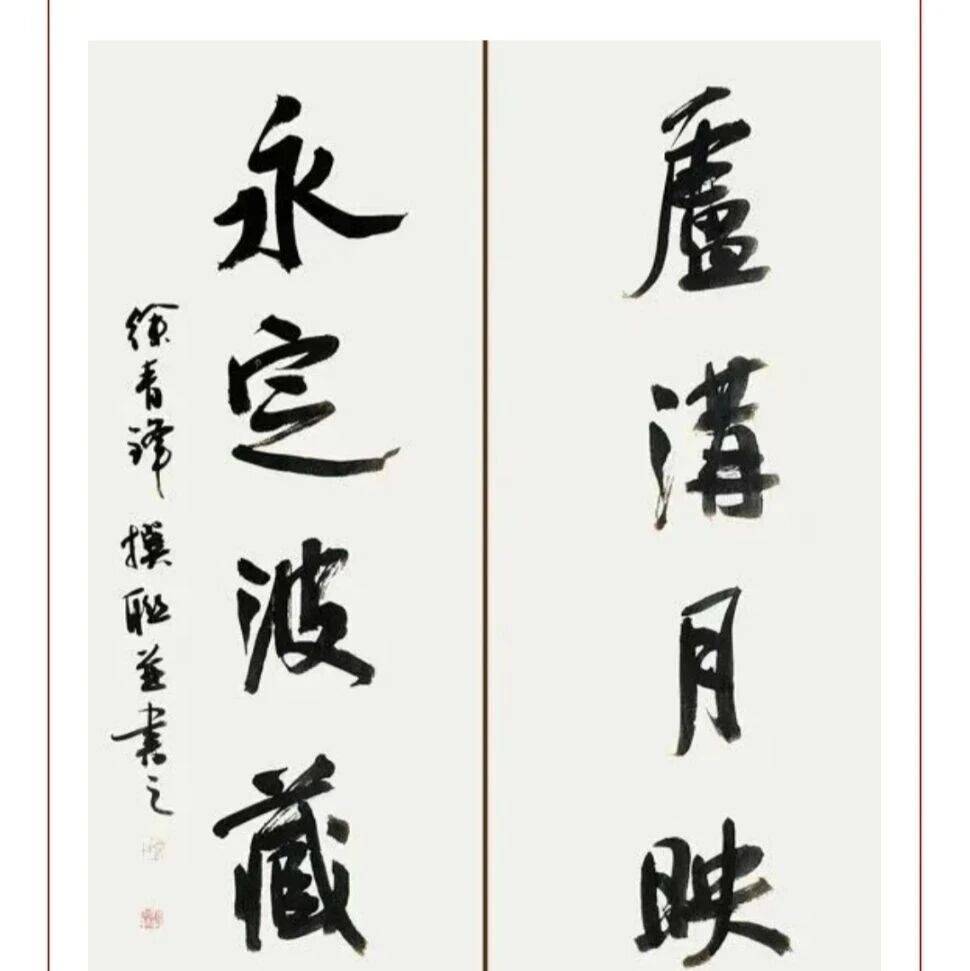 盧溝月映
永定波藏
徐青鋒撰聯並書之